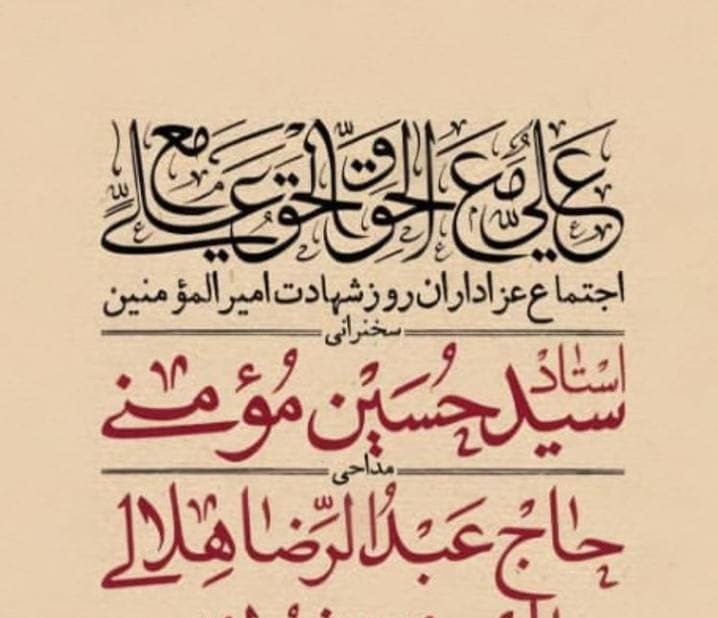 علي مع الحق و الحق مع علي
اجتماع عزاداران روز شهادت امیرالمؤمنین
سخنرانی
استاد سید حسین مؤمنی
مداحی
حاج عبدالرضا هلالی